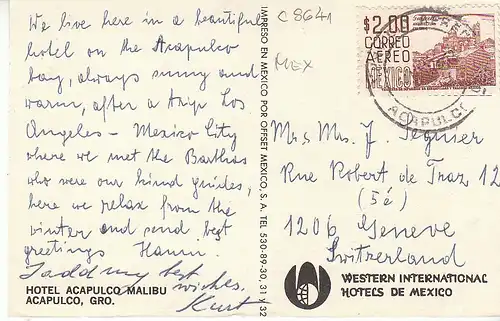 We live here in a beautiful
hotel on the Acapulco
bay, always sunny and
warm, after a trip Los
Angeles - Mexico City
where we met the Barthas
who were our kind guides,
here we relax from the
winter and send best
greetings Hanni.
I add my best
wishes.
Kurt
HOTEL ACAPULCO MALIBU
ACAPULCO, GRO.
IMPRESO EN MEXICO POR OFFSET MEXICO, S. A. TEL 530-89-30, 31 y 32
C 8641
MEX
$2.00
CORREO
AEREO
MEXICO
ACAPULCO
Mrs Mrs. J.
Rue Robert de Traz 12
(5è)
1206 Genève
Switzerland
WESTERN INTERNATIONAL
HOTELS DE MEXICO